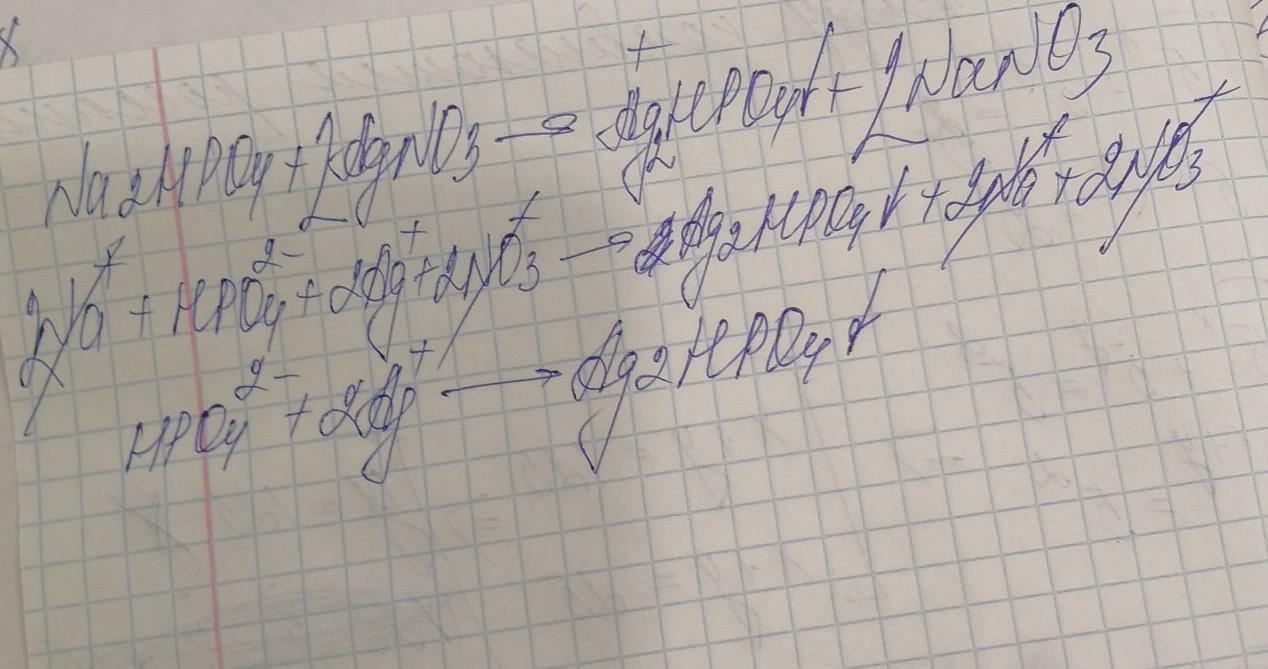 Na2HPO4 + 2AgNO3 → Ag2HPO4↓ + 2NaNO3
2Na⁺ + HPO4²⁻ + 2Ag⁺ + 2NO3⁺ → Ag2HPO4↓ + 2Na⁺ + 2NO3⁺
HPO4²⁻ + 2Ag⁺ → Ag2HPO4↓